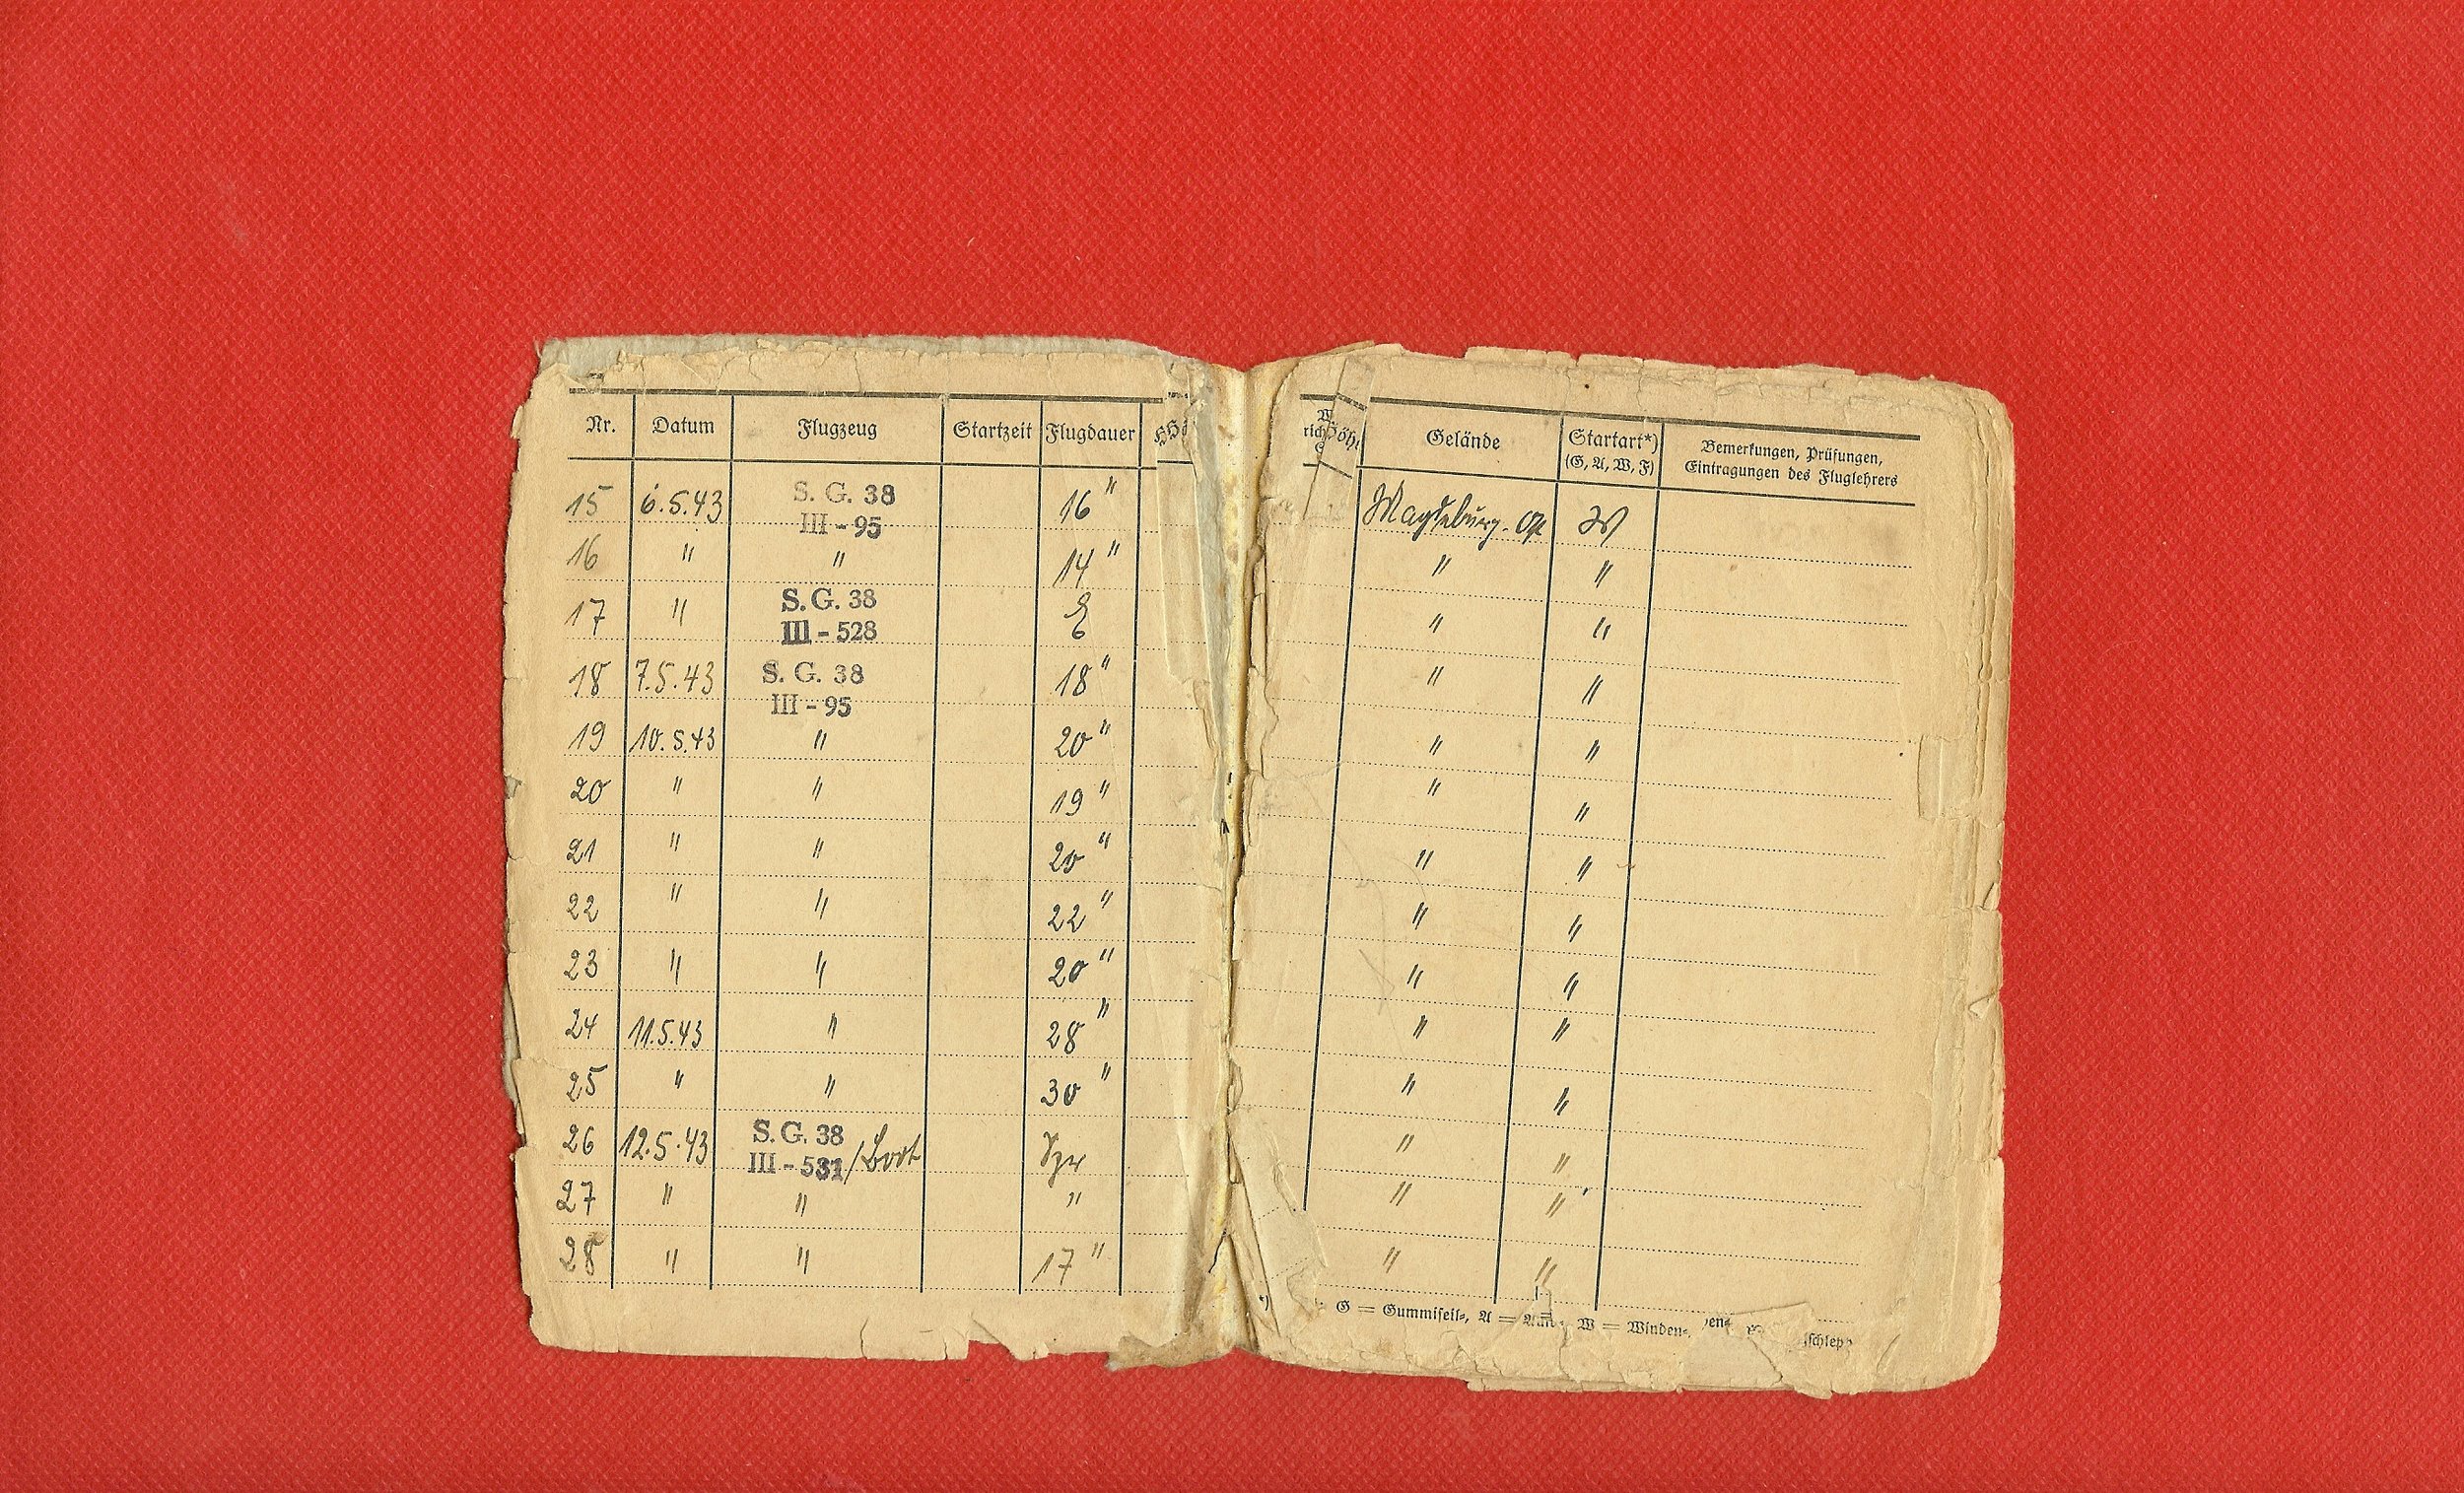 Nr. Datum Flugzeug Startzeit Flugdauer Gelände Startart*) Bemerkungen, Prüfungen,
(G, A, W, F) Eintragungen des Fluglehrers
15 6.5.43 S. G. 38 16" Magdeburg. W
III - 95
16 " " 14" " "
17 " S. G. 38 " "
III - 528
18 7.5.43 S. G. 38 18" " "
III - 95
19 10.5.43 " 20" " "
20 " " 19" " "
21 " " 20" " "
22 " " 22" " "
23 " " 20" " "
24 11.5.43 " 28" " "
25 " " 30" " "
26 12.5.43 S. G. 38 " "
III - 531/Boot
27 " " " " "
28 " " 17" " "
G = Gummiseil-, A = W = Winden-,